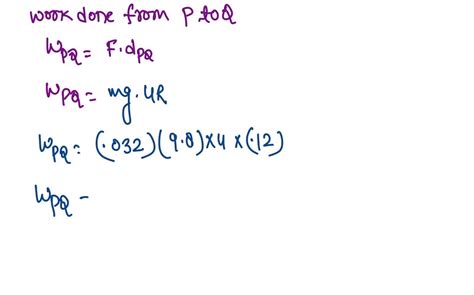 work done from P to Q
W_PQ = F.d_PQ
W_PQ = mg.4R
W_PQ = (.032)(9.8)×4×(.12)
W_PQ =